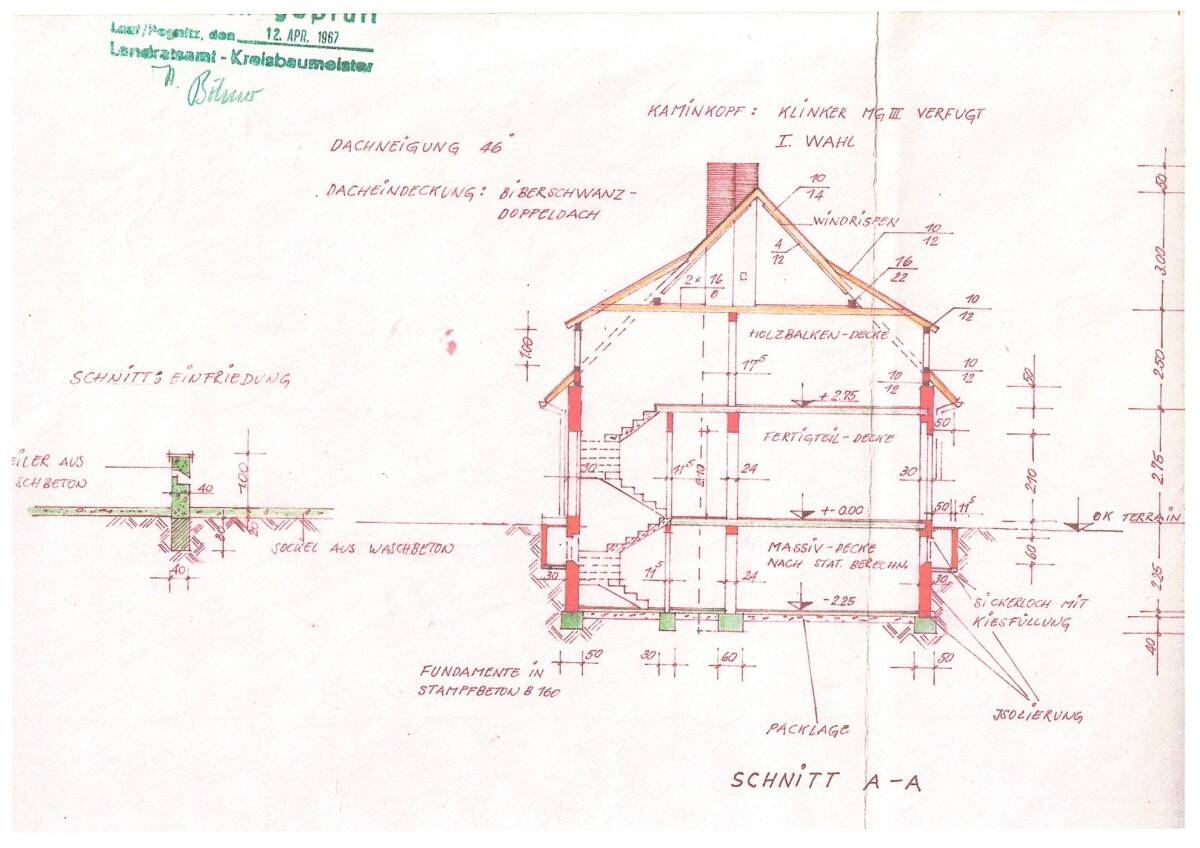 geprüft
Lauf/Pegnitz, den 12. APR. 1967
Landratsamt - Kreisbaumeister
KAMINKOPF: KLINKER MG III VERFUGT
I. WAHL
DACHNEIGUNG 46°
DACHEINDECKUNG: BIBERSCHWANZ-
DOPPELDACH
10
14
WINDRISPEN
10
12
4
12
16
22
2 x 16
8
10
12
50
3.00
HOLZBALKEN-DECKE
1.00
17⁵
10
12
10
12
50
2.50
SCHNITT: EINFRIEDUNG
+ 2.75
50
FERTIGTEIL-DECKE
EILER AUS
SCHBETON
40
30
1.00
30
11⁵
2.10
24
30
2.10
2.75
+- 0.00
50
11⁵
OK TERRAIN
80
20
SOCKEL AUS WASCHBETON
40
MASSIV-DECKE
NACH STAT. BERECHN.
60
30
11⁵
24
30
2.25
- 2.25
SICKERLOCH MIT
KIESFÜLLUNG
40
50
30
60
50
FUNDAMENTE IN
STAMPFBETON B 160
PACKLAGE
ISOLIERUNG
SCHNITT A-A